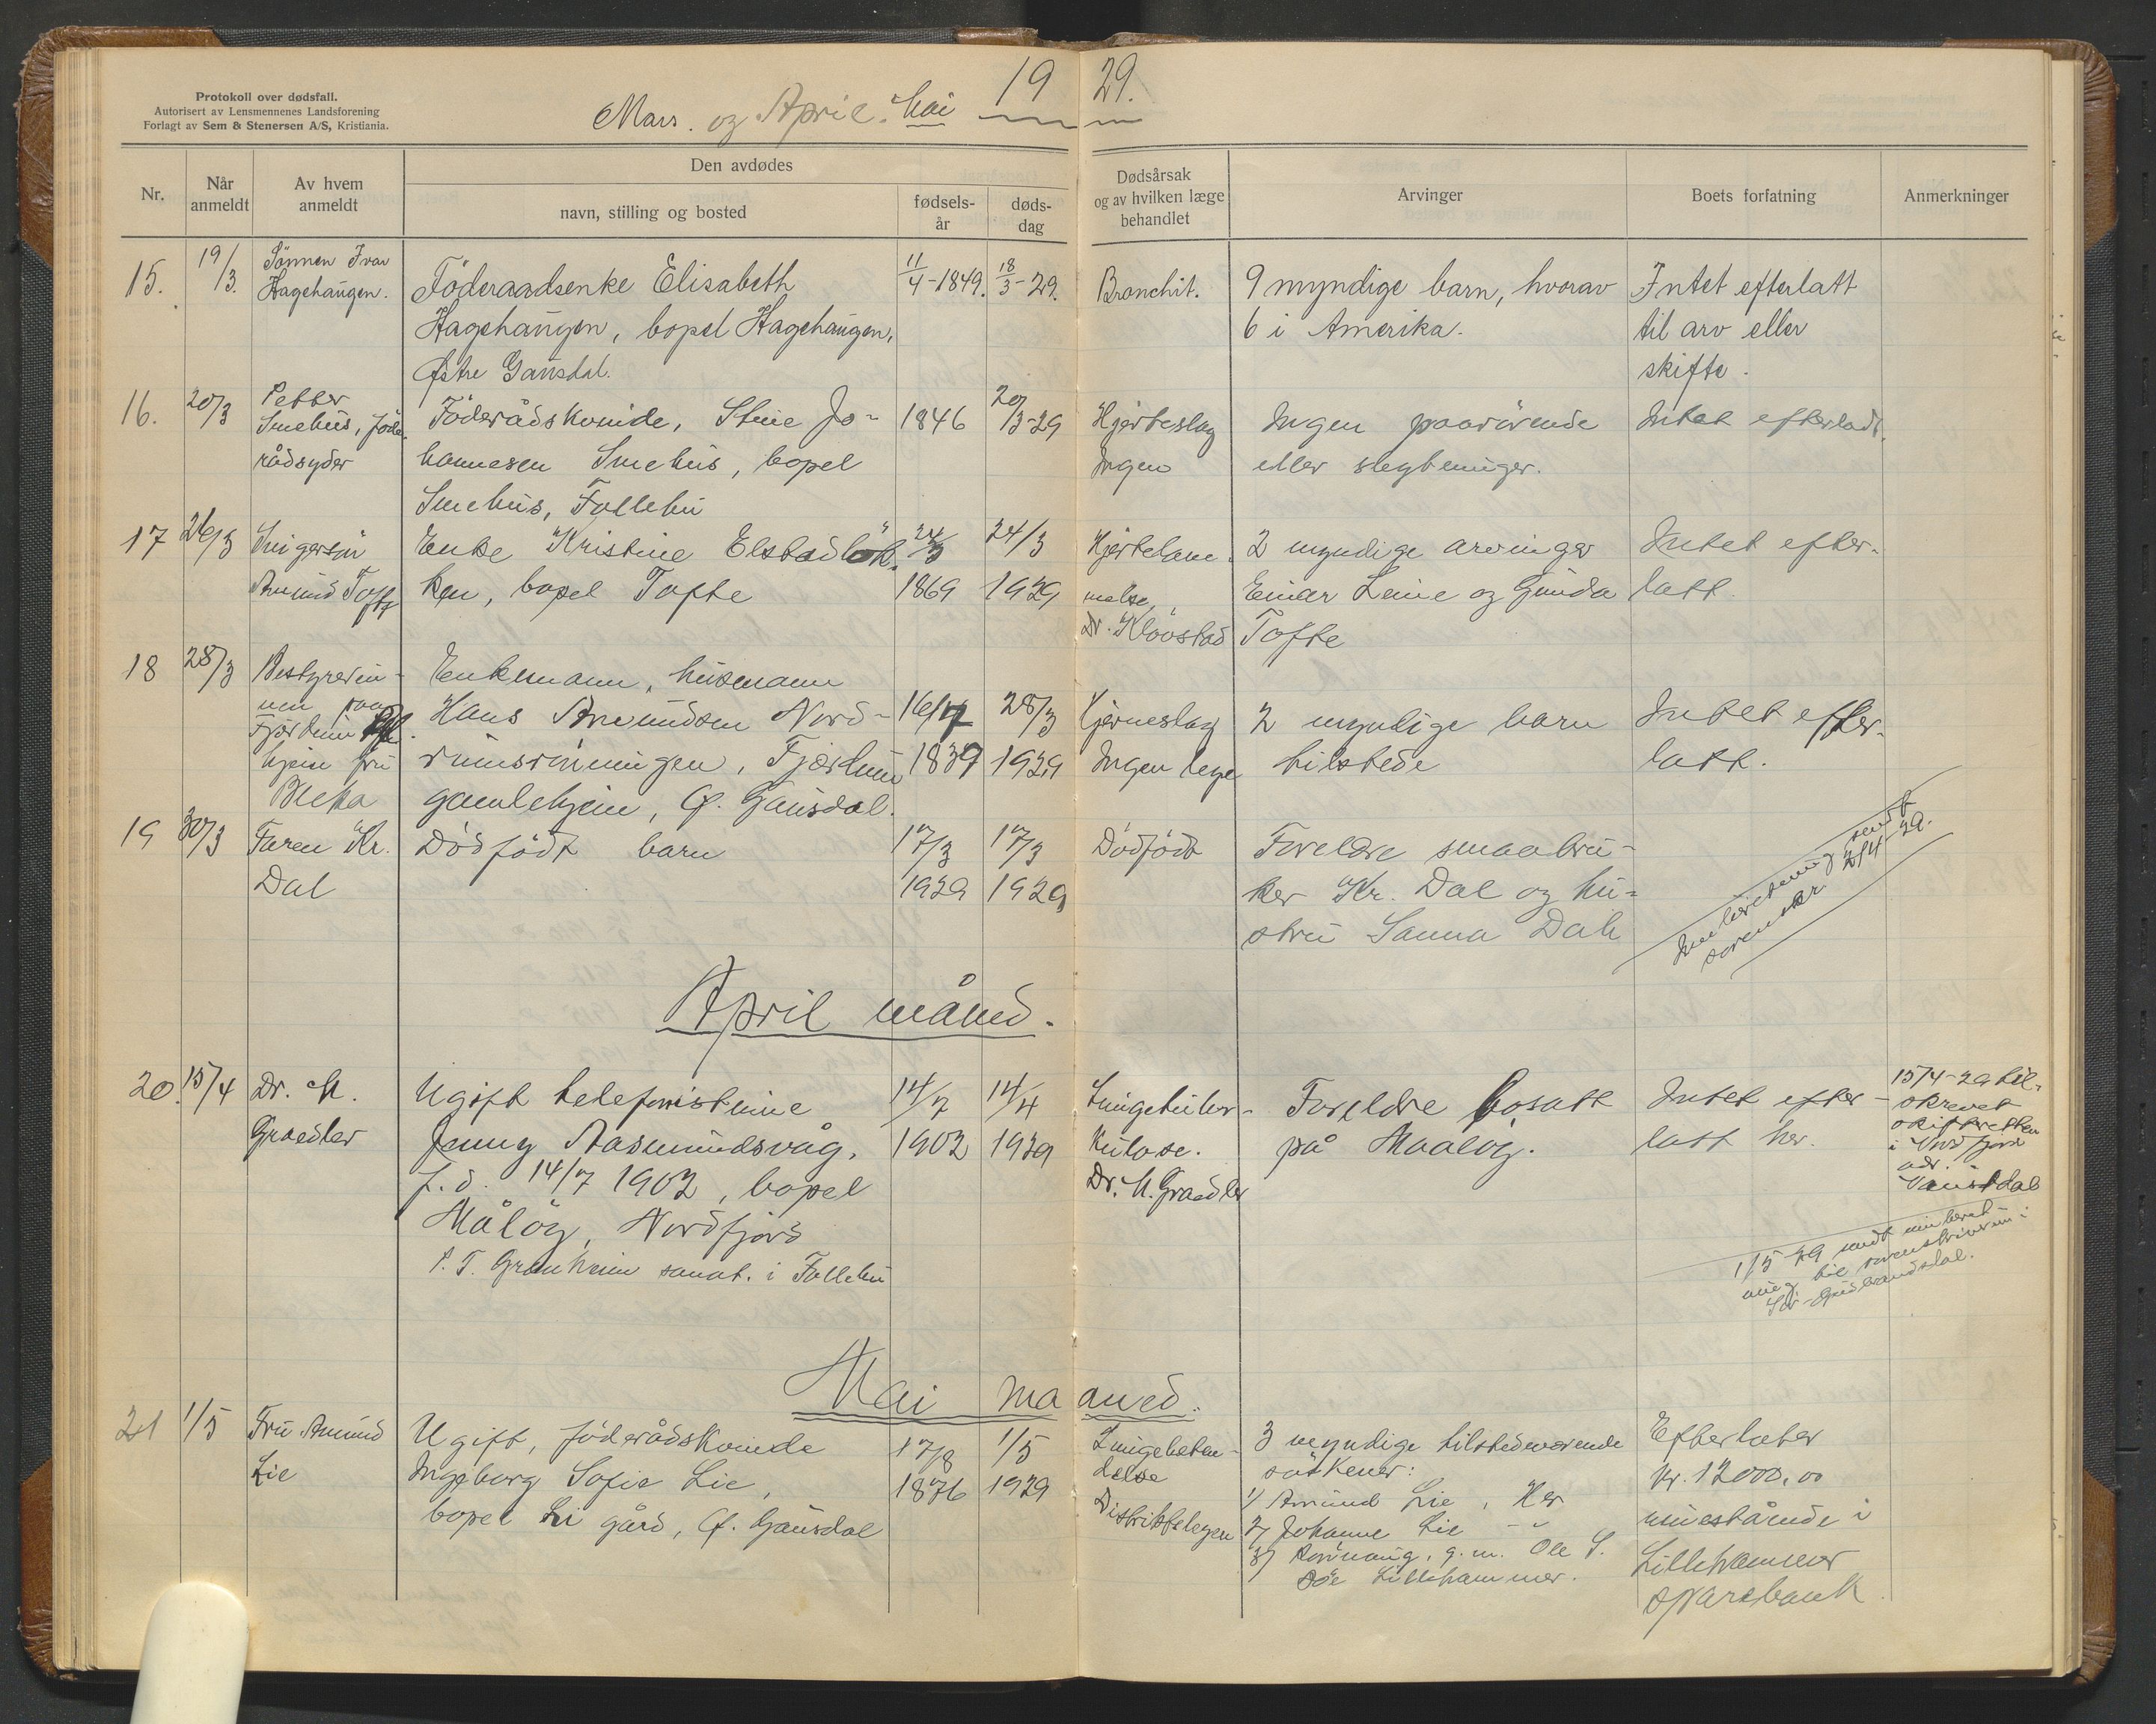 Protokoll over dødsfall.
Autorisert av Lensmennenes Landsforening
Forlagt av Sem & Stenersen A/S, Kristiania.
Mars. og April. Mai 19 29.
Nr.
Når anmeldt
Av hvem anmeldt
Den avdødes
navn, stilling og bosted
fødsels-år
døds-dag
Dødsårsak og av hvilken læge behandlet
Arvinger
Boets forfatning
Anmerkninger
15.
19/3.
Sønnen Ivar
Hagehaugen.
Föderaadsenke Elisabeth
Hagehaugen, bopel Hagehaugen,
Østre Gausdal.
11/4-1849.
18/3-29.
Bronchit.
9 myndige barn, hvorav
6 i Amerika.
Intet efterlatt
til arv eller
skifte.
16.
20/3
Petter
Smehus, föde-
rådsyder
Föderådskvinde, Stine Jo-
hannesen Smehus, bopel
Smehus, Follebu
1846
20/3-29
Hjerteslag
Ingen
Ingen paarörende
eller slegtninger.
Intet efterladt.
17
26/3
Svigersön
Amund Tofte
Enke Kristine Elstadløk-
ken, bopel Tofte
24/3
1869
24/3
1929
Hjertelam-
melse,
Dr. Klövstad
2 myndige arvinger
Einar Leine og Gunda
Tofte
Intet efter-
latt.
18
28/3
Bestyrerin-
nen paa
Fjørtun
hjem fru
Bleka
Enkemann, husmann
Hans Amundsen Nord-
rumsrönningen, Fjørtun
gamlehjem, Ø. Gausdal.
16/7
1839
28/3
1929
Hjerneslag
Ingen lege
2 myndige barn
tilstede
Intet efter-
latt.
19
30/3
Faren Kr.
Dal
Dödfödt barn
17/3
1929
17/3
1929
Dödfödt
Foreldre smaabru-
ker Kr. Dal og hu-
stru Sanna Dal
Innberetning sendt
sorenskr. 2/4 29.
April måned.
20.
15/4
Dr. M.
Graedler
Ugift telefonistinne
Jenny Aasmundsvåg.
f.d. 14/7 1902, bopel
Målöy, Nordfjord
P.T. Granheim sanat. i Follebu
14/7
1902
14/4
1929
Lungetuber-
kulose.
Dr. M. Graedler
Foreldre bosatt
på Maalöy.
Intet efter-
latt her.
15/4-29 til-
skrevet
skifteretten
i Nordfjord
adr.
1/5-29 sendt innberet-
ning til sorenskriveren i
Sör-Gudbrandsdal.
Mai maaned.
21
1/5
Fru Amund
Lie
Ugift, föderådskvinde
Ingeborg Sofie Lie,
bopel Li gård, Ø. Gausdal
17/8
1876
1/5
1929
Lungebeten-
delse
Distriktslegen
3 myndige tilstedeværende
søskener:
1/ Amund Lie, Her
2/ Johanne Lie - " -
3/ Rönnaug, g.m. Ole S.
Lillehammer.
Efterlater
kr. 12000,00
innestående i
Lillehammer
sparebank.